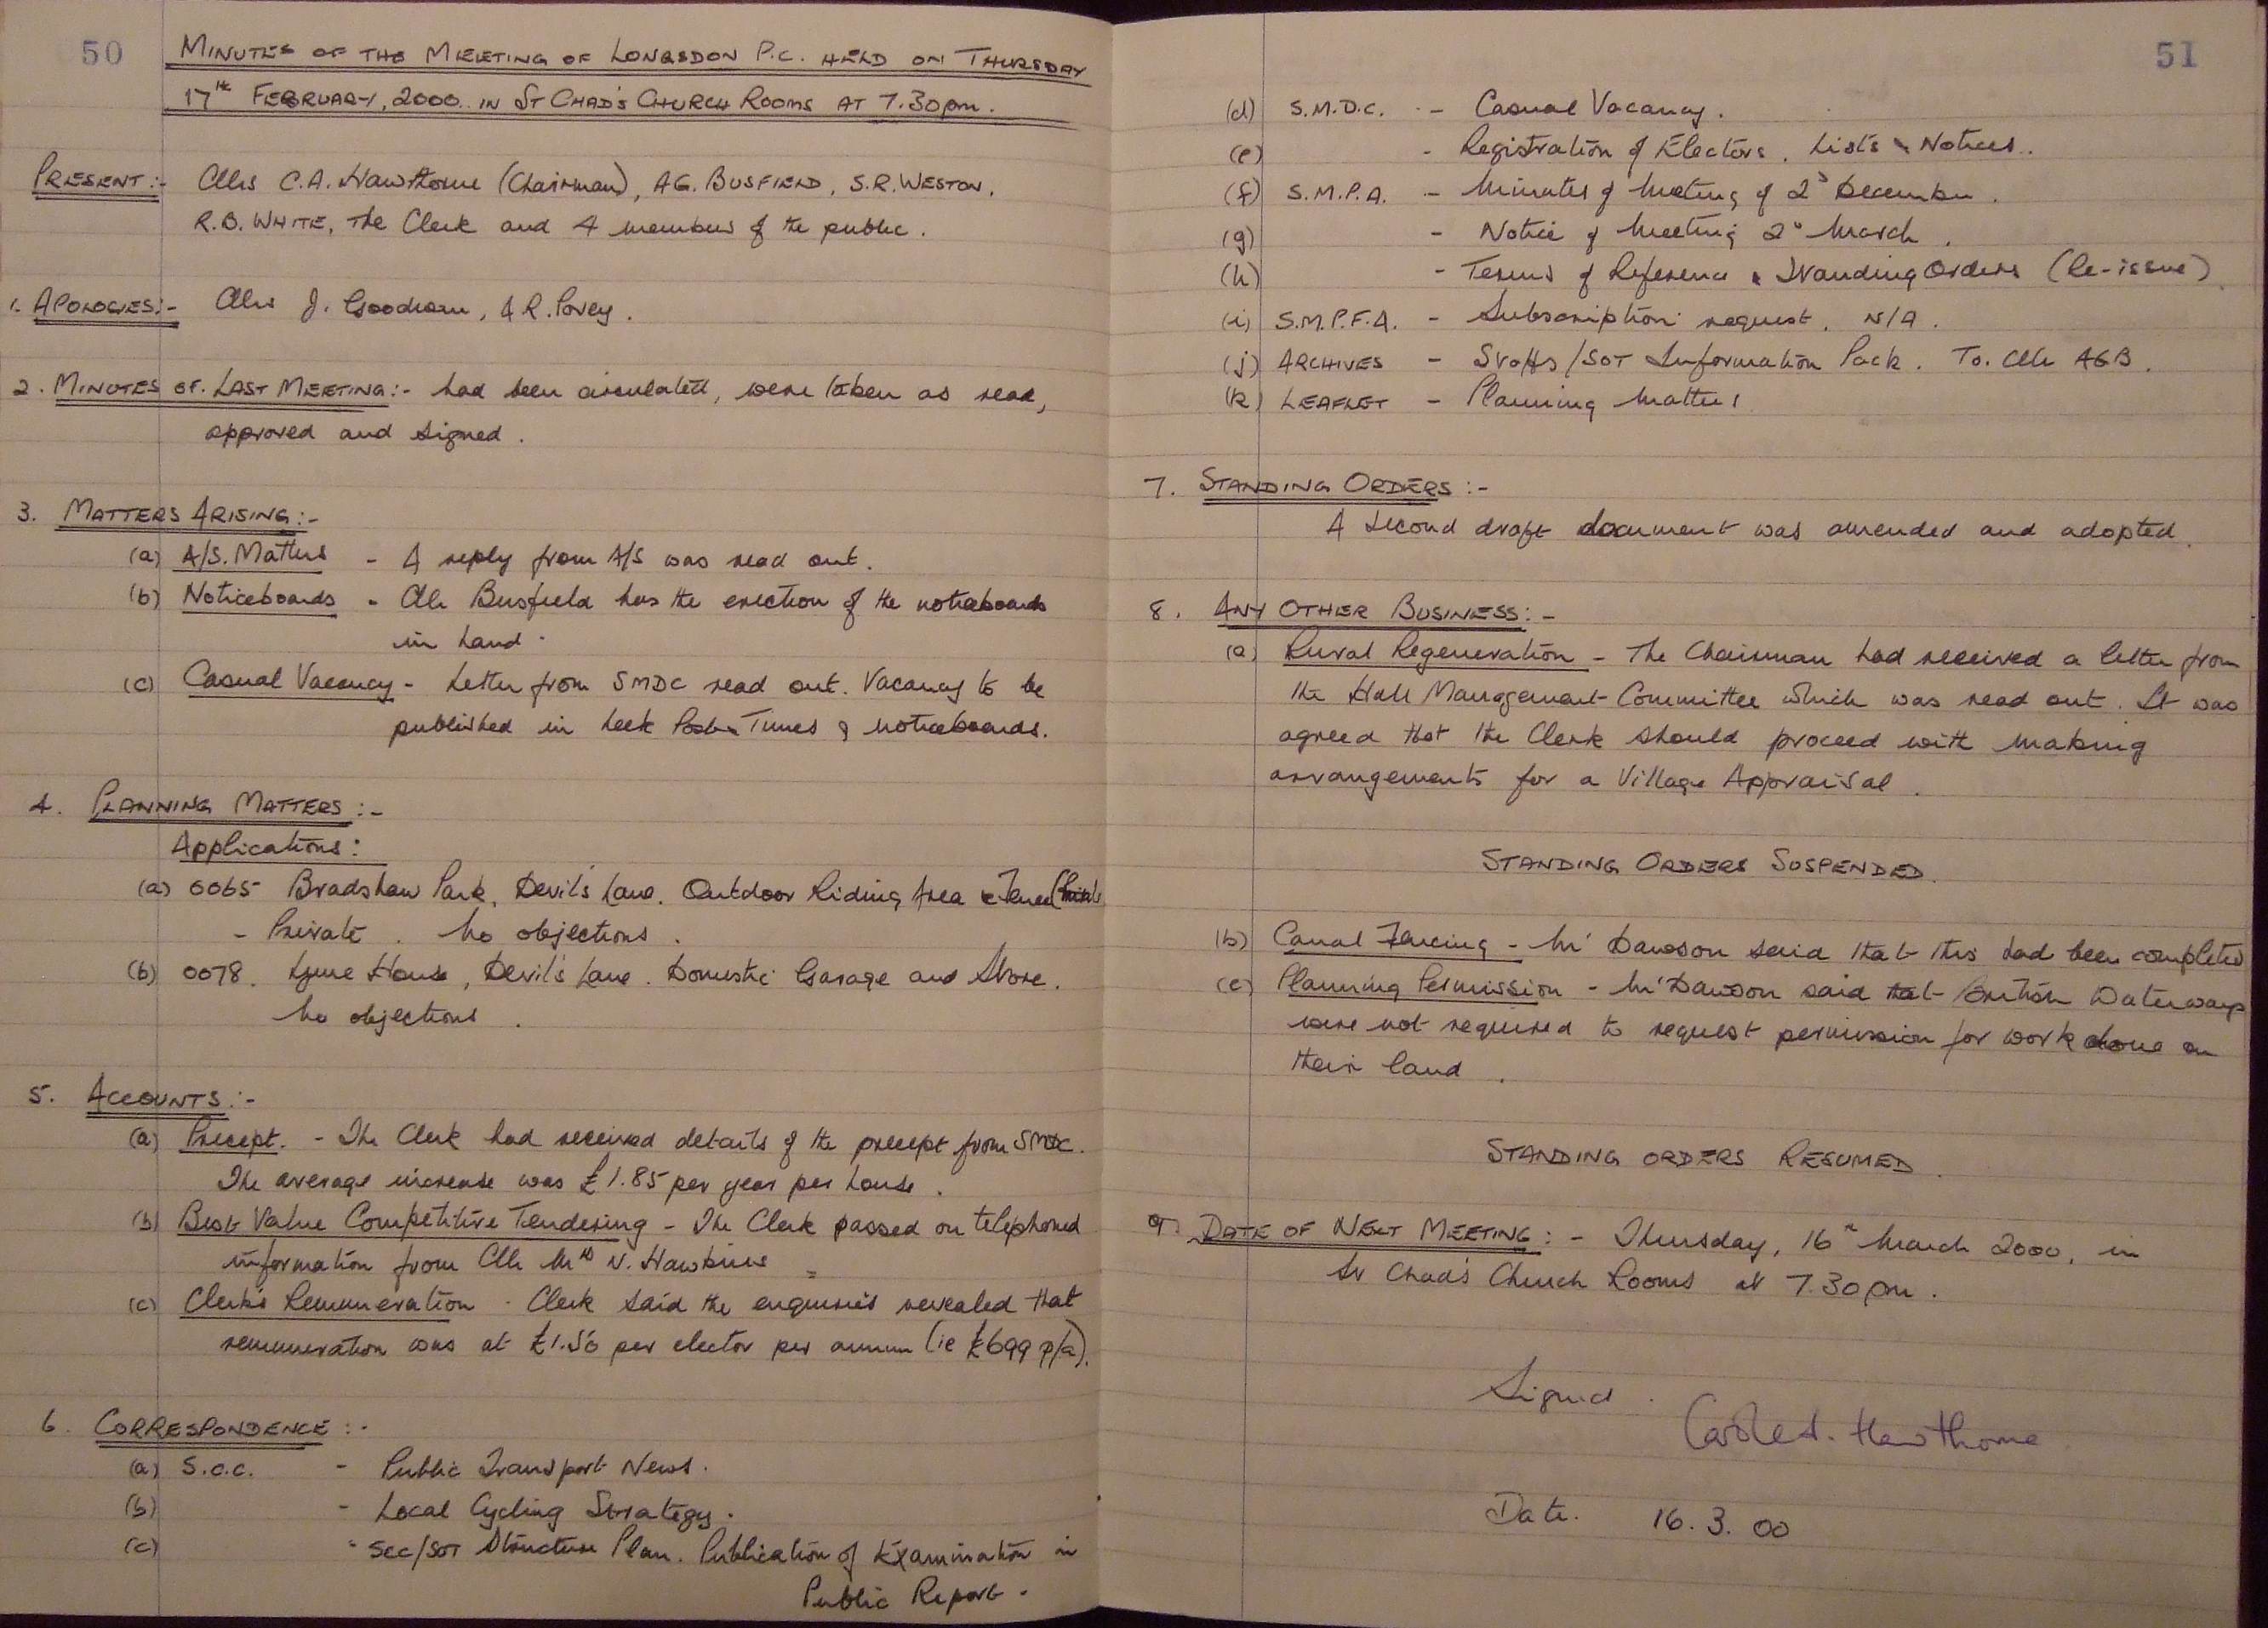 50
MINUTES OF THE MEETING OF LONGSDON P.C. HELD ON THURSDAY
17th FEBRUARY, 2000 IN ST CHAD'S CHURCH ROOMS AT 7.30pm.
PRESENT:- Cllrs C.A. Hawthorne (Chairman), A.G. BUSFIELD, S.R. WESTON,
R.B. WHITE, The Clerk and 4 members of the public.
1. APOLOGIES:- Cllrs J. , A R. Povey.
2. MINUTES OF LAST MEETING:- had been circulated, were taken as read,
approved and signed.
3. MATTERS ARISING:-
(a) A/S. Matters - A reply from A/S was read out.
(b) Noticeboards - Cllr Busfield has the erection of the noticeboards
in hand.
(c) Casual Vacancy - Letter from SMDC read out. Vacancy to be
published in Leek Post & Times & noticeboards.
4. PLANNING MATTERS:-
Applications:
(a) 0065 Bradshaw Park, Devil's Lane. Outdoor Riding Area
- Private. No objections.
(b) 0078. House, Devil's Lane. Domestic Garage and Store.
No objections.
5. ACCOUNTS:-
(a) Precept. - The Clerk had received details of the precept from SMDC.
The average increase was £1.85 per year per house.
(b) Best Value Competitive Tendering - The Clerk passed on telephoned
information from Cllr Mrs N. Hawkins
(c) Clerk's Remuneration - Clerk said the enquiries revealed that
remuneration was at £1.56 per elector per annum (ie £699 p/a).
6. CORRESPONDENCE:-
(a) S.C.C. - Public Transport News.
(b) - Local Cycling Strategy.
(c) - SCC/SOT Structure Plan. Publication of Examination in
Public Report.
51
(d) S.M.D.C. - Casual Vacancy.
(e) - Registration of Electors. Lists & Notices.
(f) S.M.P.A. - Minutes of Meeting of 2nd December.
(g) - Notice of Meeting 2nd March.
(h) - Terms of Reference & Standing Orders (Re-issue)
(i) S.M.P.F.A. - Subscription request. N/A.
(j) ARCHIVES - Staffs/SOT Information Pack. To. Cllr AGB.
(k) LEAFLET - Planning Matters
7. STANDING ORDERS:-
A second draft document was amended and adopted.
8. ANY OTHER BUSINESS:-
(a) Rural Regeneration - The Chairman had received a letter from
the Hall Management Committee which was read out. It was
agreed that the Clerk should proceed with making
arrangements for a Village Appraisal.
STANDING ORDERS SUSPENDED.
(b) Canal Fencing - Mr Dawson said that this had been completed
(c) Planning Permission - Mr Dawson said that British Waterways
were not required to request permission for work done on
their land.
STANDING ORDERS RESUMED.
9. DATE OF NEXT MEETING:- Thursday, 16th March 2000, in
St Chad's Church Rooms at 7.30pm.
Signed. Carole A. Hawthorne
Date. 16.3.00